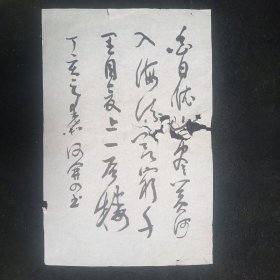 白日依山尽黄河
入海流欲穷千
里目更上一层楼
丁亥之春